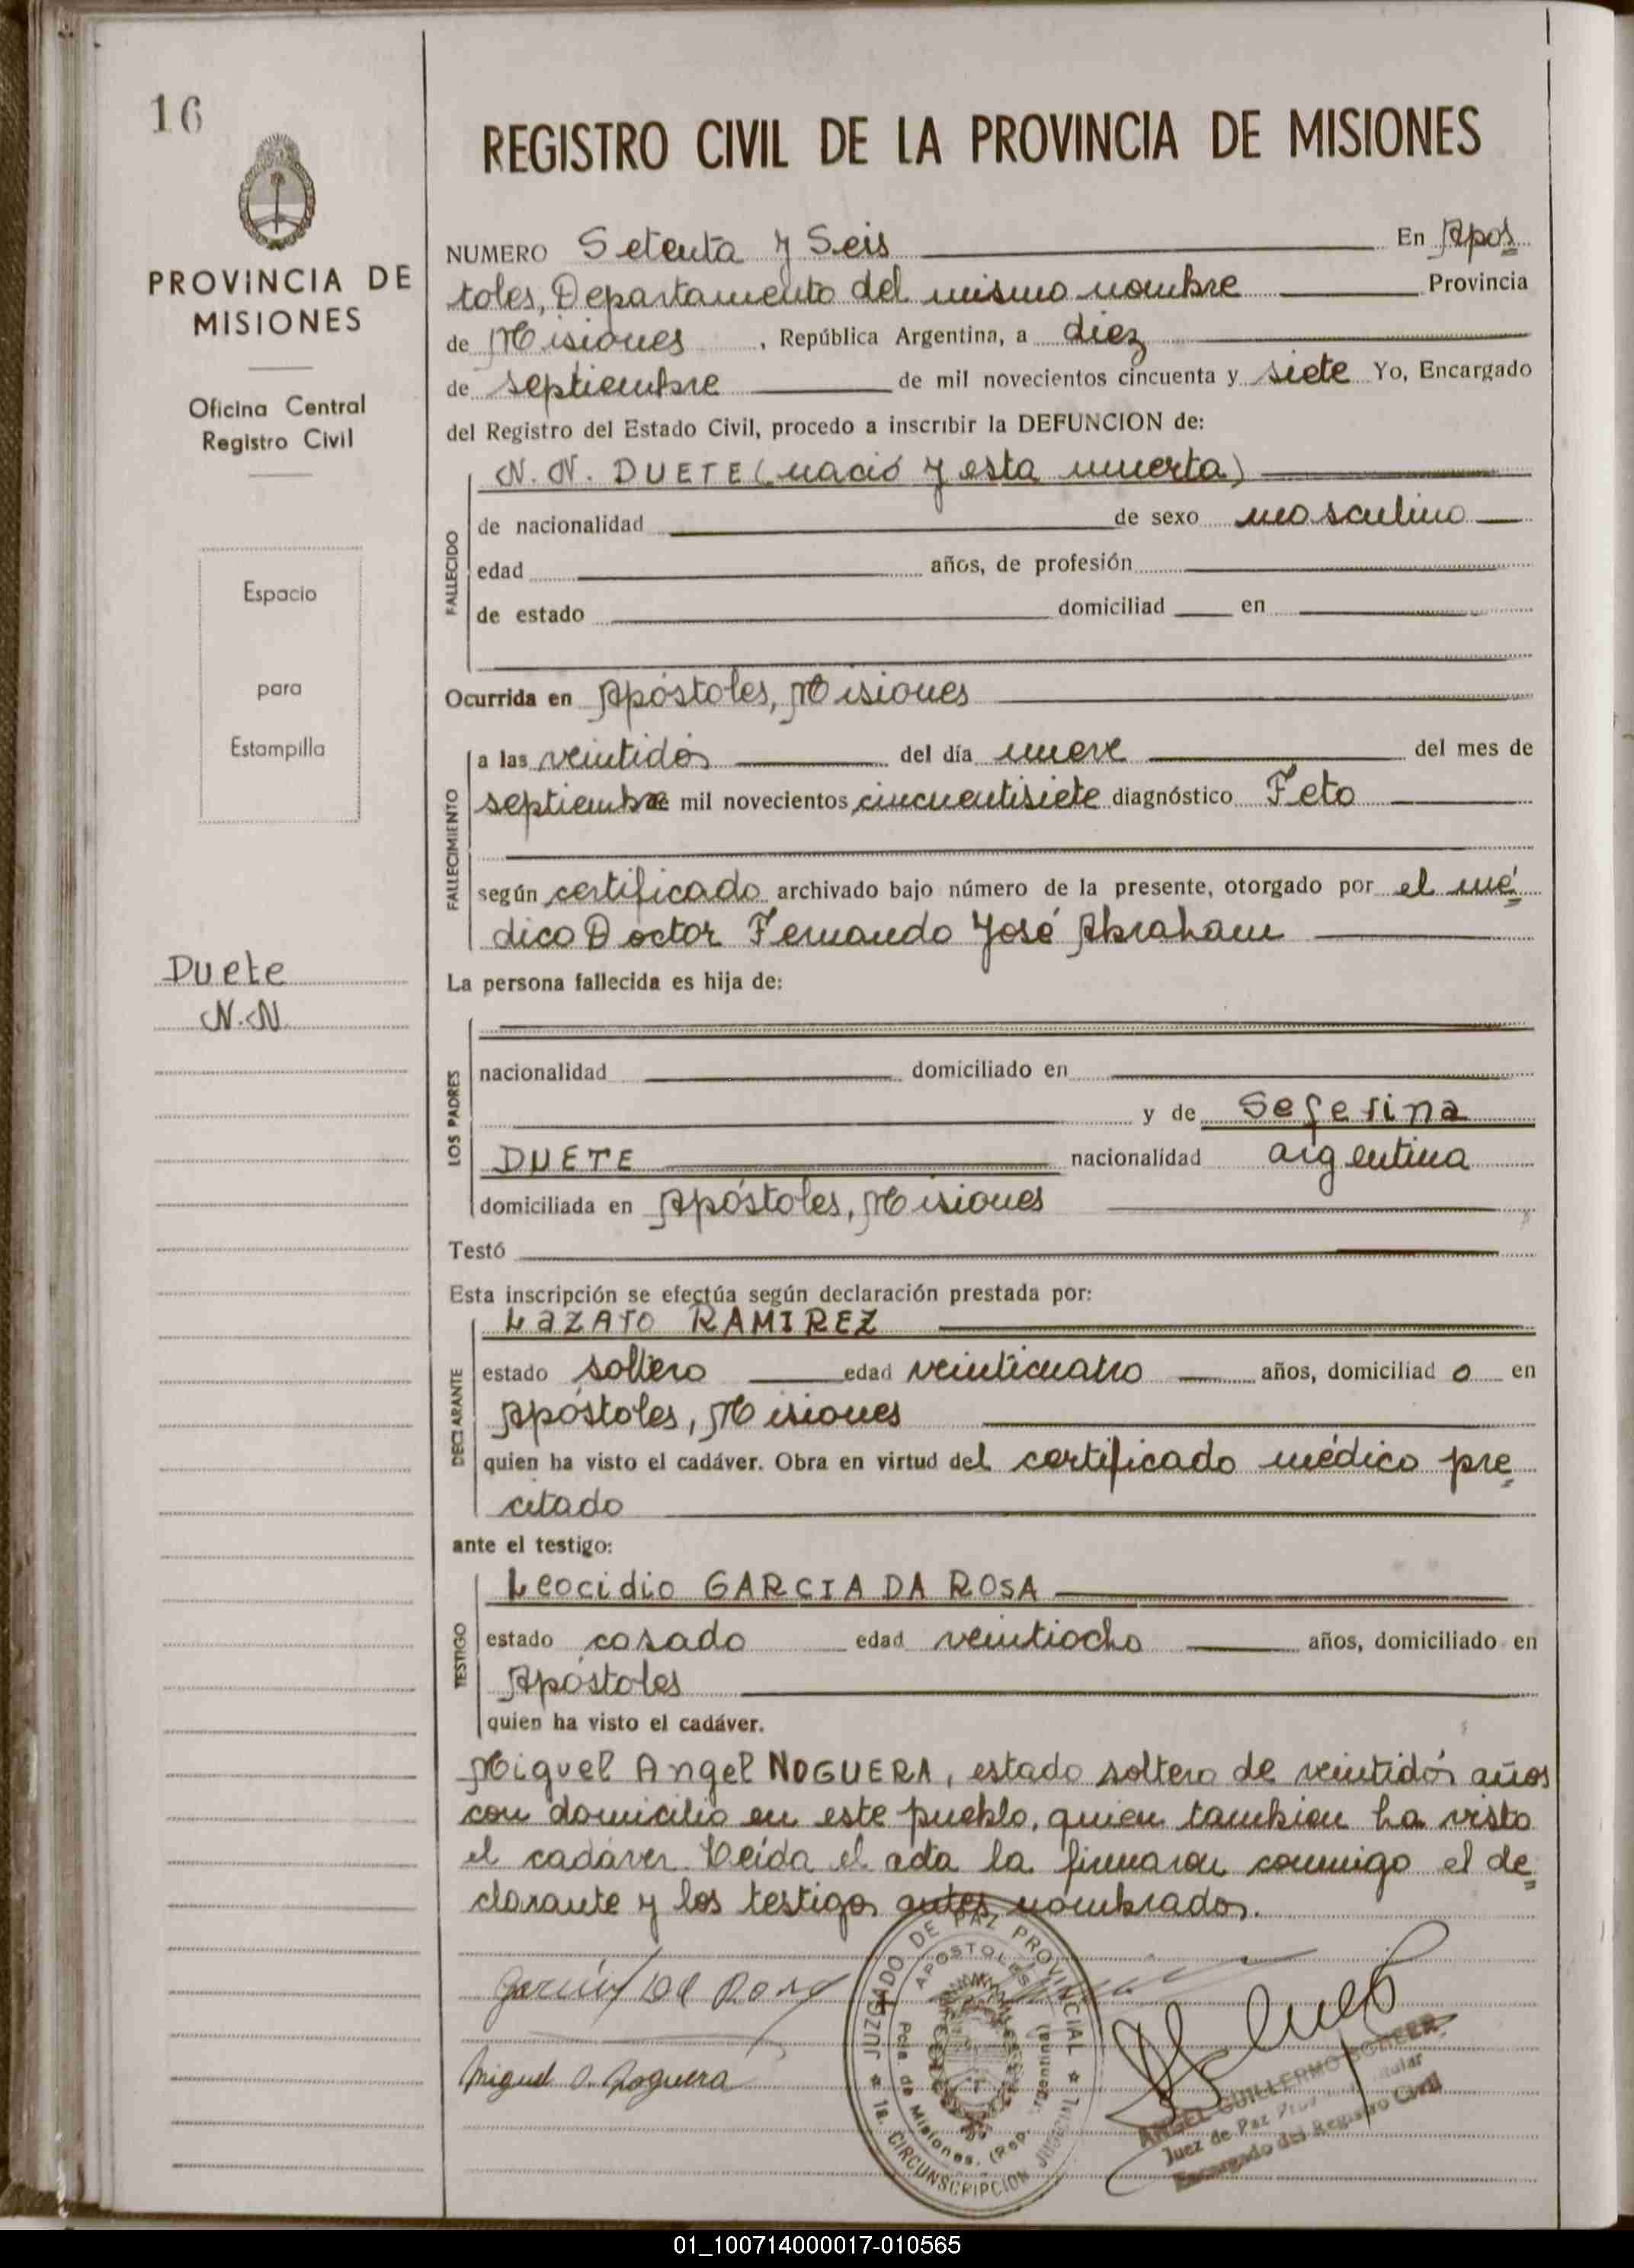 16
PROVINCIA DE
MISIONES
Oficina Central
Registro Civil
Espacio
para
Estampilla
Duete
N.N.
REGISTRO CIVIL DE LA PROVINCIA DE MISIONES
NUMERO Setenta y Seis En Apos
toles, Departamento del mismo nombre Provincia
de Misiones , República Argentina, a diez
de septiembre de mil novecientos cincuenta y siete Yo, Encargado
del Registro del Estado Civil, procedo a inscribir la DEFUNCION de:
N. N. DUETE (nació y esta muerta)
FALLECIDO
de nacionalidad de sexo masculino
edad años, de profesión
de estado domiciliad en
Ocurrida en Apóstoles, Misiones
FALLECIMIENTO
a las veintidós del día nueve del mes de
septiembre de mil novecientos cincuentisiete diagnóstico Feto
según certificado archivado bajo número de la presente, otorgado por el mé
dico Doctor Fernando José Abraham
La persona fallecida es hija de:
LOS PADRES
nacionalidad domiciliado en
y de Seferina
DUETE nacionalidad argentina
domiciliada en Apóstoles, Misiones
Testó
Esta inscripción se efectúa según declaración prestada por:
Lazaro RAMIREZ
DECLARANTE
estado soltero edad veinticuatro años, domiciliad o en
Apóstoles, Misiones
quien ha visto el cadáver. Obra en virtud del certificado médico pre
citado
ante el testigo:
Leocidio GARCIA DA ROSA
TESTIGO
estado casado edad veintiocho años, domiciliado en
Apóstoles
quien ha visto el cadáver.
Miguel Angel NOGUERA, estado soltero de veintidós años
con domicilio en este pueblo, quien tambien ha visto
el cadáver. Leída el acta la firmaron conmigo el de
clarante y los testigos antes nombrados.
Garcia Da Rosa
Miguel A. Noguera
JUZGADO DE PAZ PROVINCIAL
APOSTOLES
Pcia. de Misiones. (Rep. Argentina)
1a. CIRCUNSCRIPCION JUDICIAL
ANGEL GUILLERMO
Juez de Paz
Encargado del Registro Civil
01_100714000017-010565